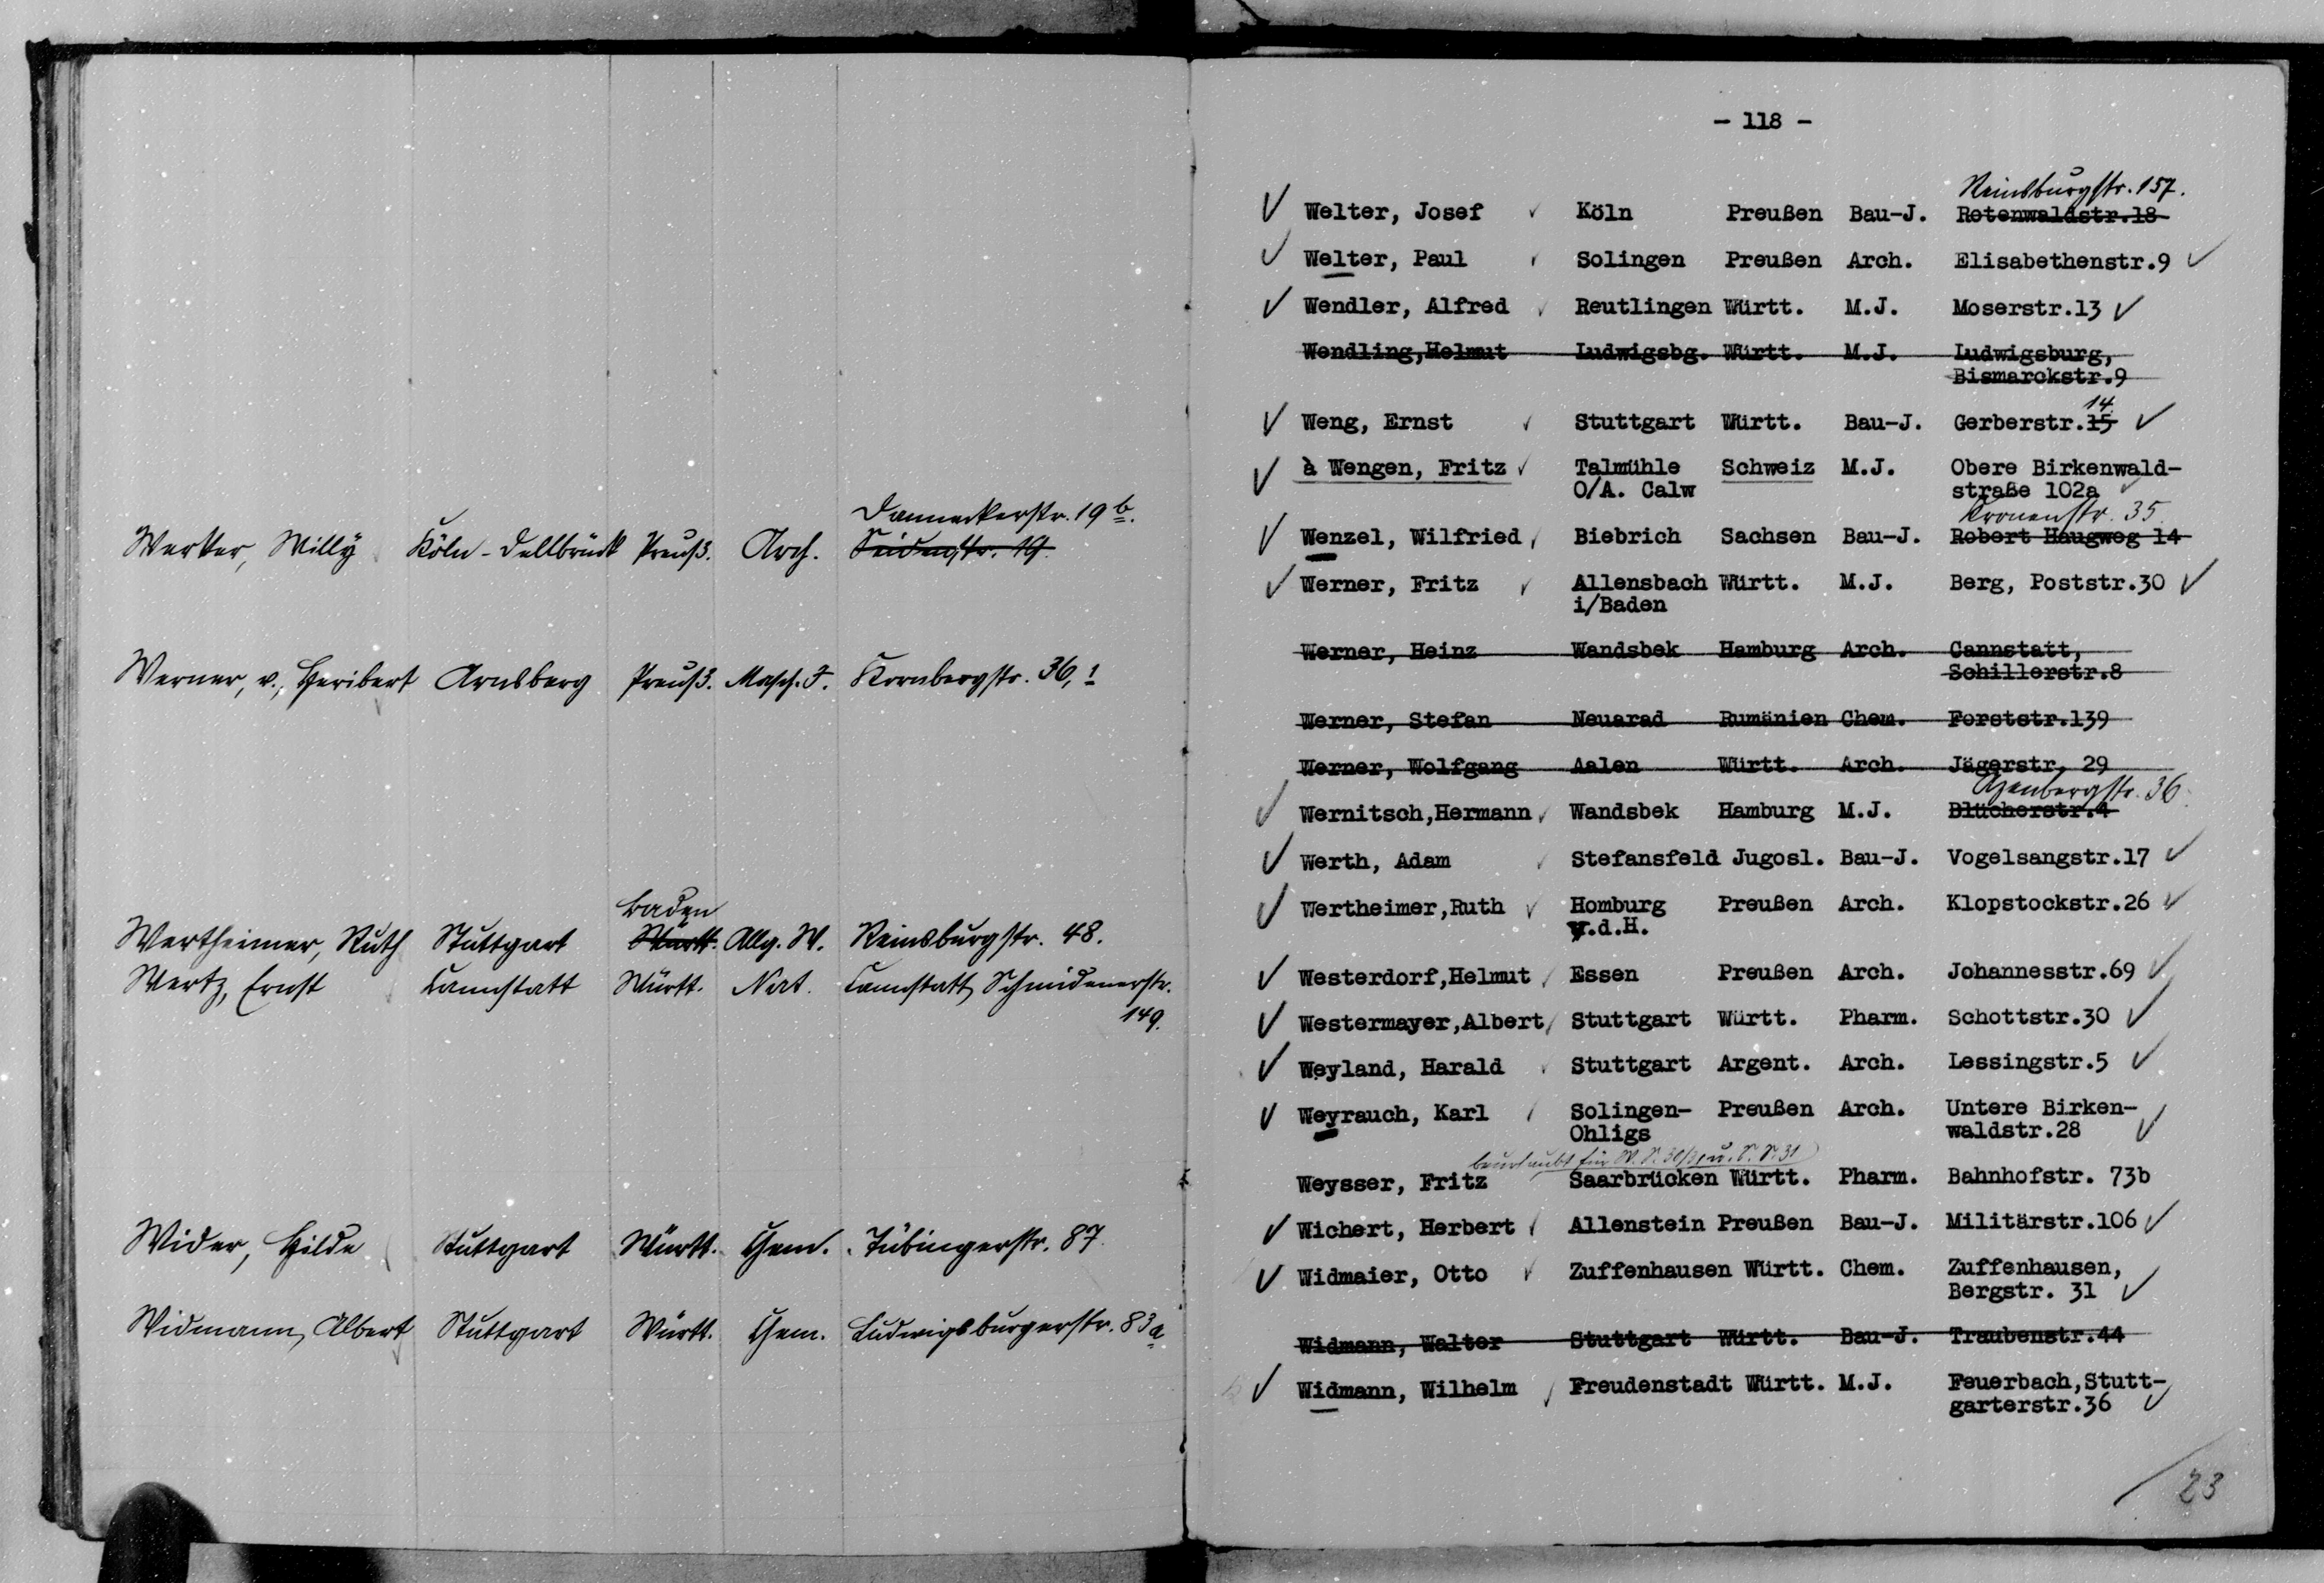 Danneckerstr. 19 b.
Werker, Willy Köln-Dellbrück Preuß. Arch. Seidenstr. 19.
Werner, v., Heribert Arnsberg Preuß. Masch. J. Kornbergstr. 36, 1
Baden
Wertheimer, Ruth Stuttgart Württ. Allg. W. Reinsburgstr. 48.
Wertz, Ernst Cannstatt Württ. Nat. Cannstatt, Schmidenerstr.
149.
Wider, Hilde Stuttgart Württ. Chem. Tübingerstr. 87.
Widmann, Albert Stuttgart Württ. Chem. Ludwigsburgerstr. 83a
- 118 -
Reinsburgstr. 157.
Welter, Josef Köln Preußen Bau-J. Rotenwaldstr.18
Welter, Paul Solingen Preußen Arch. Elisabethenstr.9
Wendler, Alfred Reutlingen Württ. M.J. Moserstr.13
Wendling,Helmut Ludwigsbg. Württ. M.J. Ludwigsburg,
Bismarckstr.9
14.
Weng, Ernst Stuttgart Württ. Bau-J. Gerberstr.15
à Wengen, Fritz Talmühle Schweiz M.J. Obere Birkenwald-
O/A. Calw straße 102a
Kronenstr. 35.
Wenzel, Wilfried Biebrich Sachsen Bau-J. Robert Haugweg 14
Werner, Fritz Allensbach Württ. M.J. Berg, Poststr.30
i/Baden
Werner, Heinz Wandsbek Hamburg Arch. Cannstatt,
Schillerstr.8
Werner, Stefan Neuarad Rumänien Chem. Forststr.139
Werner, Wolfgang Aalen Württ. Arch. Jägerstr. 29
Azenbergstr. 36.
Wernitsch,Hermann Wandsbek Hamburg M.J. Blücherstr.4
Werth, Adam Stefansfeld Jugosl. Bau-J. Vogelsangstr.17
Wertheimer,Ruth Homburg Preußen Arch. Klopstockstr.26
v.d.H.
Westerdorf,Helmut Essen Preußen Arch. Johannesstr.69
Westermayer,Albert Stuttgart Württ. Pharm. Schottstr.30
Weyland, Harald Stuttgart Argent. Arch. Lessingstr.5
Weyrauch, Karl Solingen- Preußen Arch. Untere Birken-
Ohligs waldstr.28
beurlaubt für W. S. 30/31 u. S. S. 31
Weysser, Fritz Saarbrücken Württ. Pharm. Bahnhofstr. 73b
Wichert, Herbert Allenstein Preußen Bau-J. Militärstr.106
Widmaier, Otto Zuffenhausen Württ. Chem. Zuffenhausen,
Bergstr. 31
Widmann, Walter Stuttgart Württ. Bau-J. Traubenstr.44
Widmann, Wilhelm Freudenstadt Württ. M.J. Feuerbach,Stutt-
garterstr.36
23